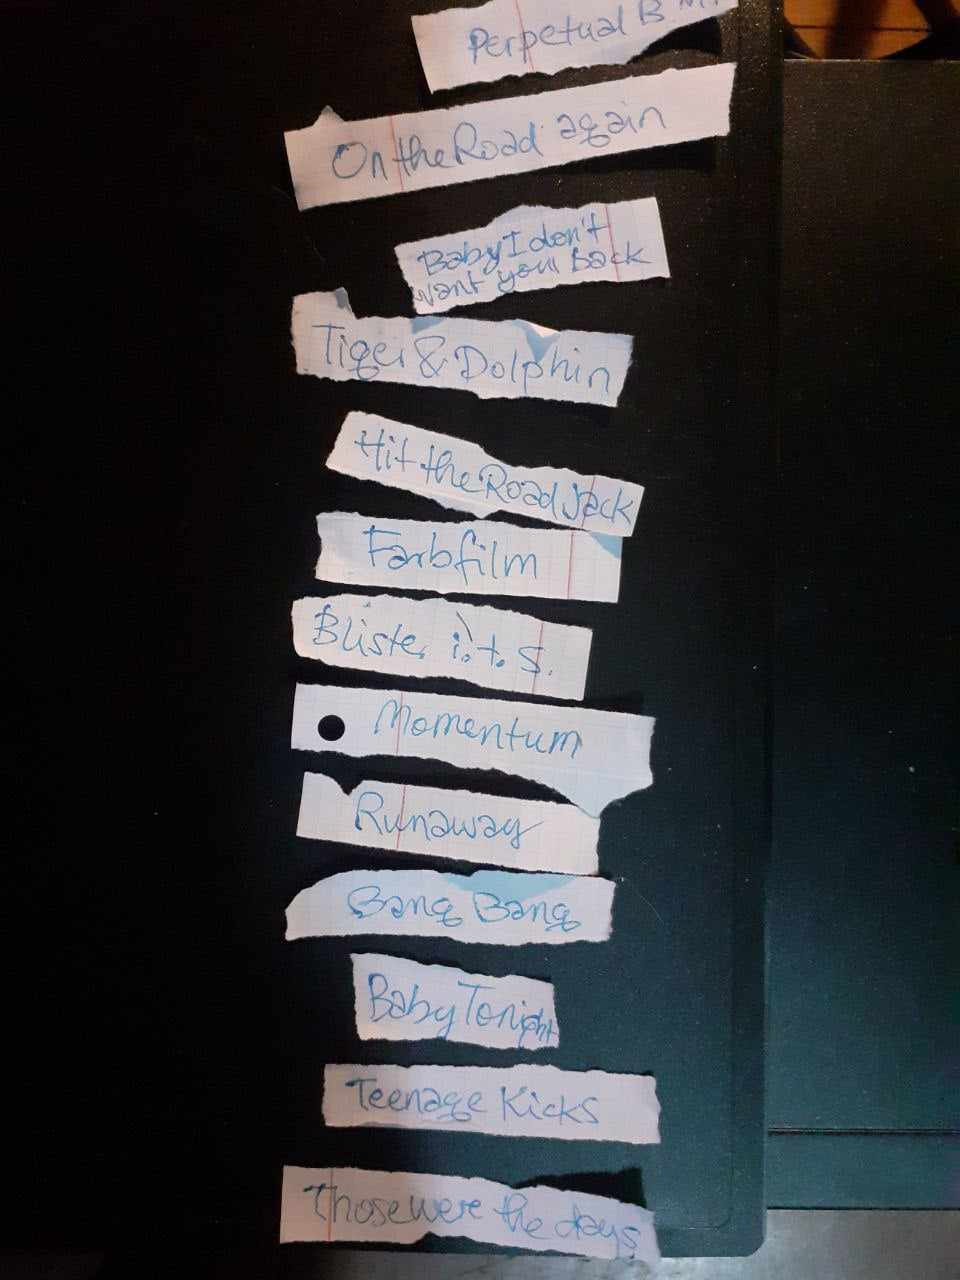 Perpetual B.M.
On the Road again
Baby I don't
want you Back
Tiger & Dolphin
Hit the Road Jack
Farbfilm
Blister i.t.S.
Momentum
Runaway
Bang Bang
Baby Tonight
Teenage Kicks
Those were the days